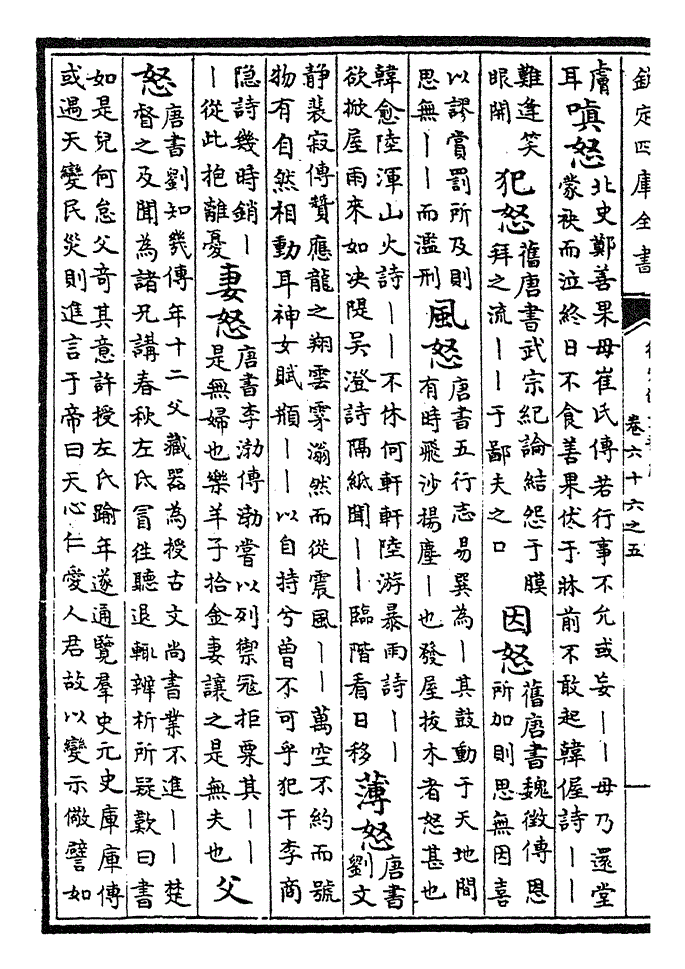 欽定四庫全書
卷六十六之五
膚
耳
嗔怒
北史鄭善果母崔氏傳若行事不允或妄丨丨母乃還堂
蒙袂而泣終日不食善果伏于牀前不敢起韓偓詩丨丨
難逢笑
眼開
犯怒
舊唐書武宗紀論結怨于膜
拜之流丨丨于鄙夫之口
因怒
舊唐書魏徵傳恩
所加則思無因喜
以謬賞罰所及則
思無丨丨而濫刑
風怒
唐書五行志易巽為丨其鼓動于天地間
有時飛沙揚塵丨也發屋拔木者怒甚也
韓愈陸渾山火詩丨丨不休何軒軒陸游暴雨詩丨丨
欲掀屋雨來如决隄吳澄詩隔紙聞丨丨臨階看日移
薄怒
唐書
劉文
静裴寂傳贊應龍之翔雲霿滃然而從震風丨丨萬空不約而號
物有自然相動耳神女賦頩丨丨以自持兮曾不可乎犯干李商
隐詩幾時銷丨
丨從此抱離憂
妻怒
唐書李渤傳渤嘗以列禦冦拒粟其丨丨
是無婦也樂羊子拾金妻讓之是無夫也
父
怒
唐書劉知幾傳年十二父藏器為授古文尚書業不進丨丨楚
督之及聞為諸兄講春秋左氏冐徃聽退輒辨析所疑歎曰書
如是兒何怠父奇其意許授左氏踰年遂通覽羣史元史庫庫傳
或遇天變民災則進言于帝曰天心仁愛人君故以變示儆譬如